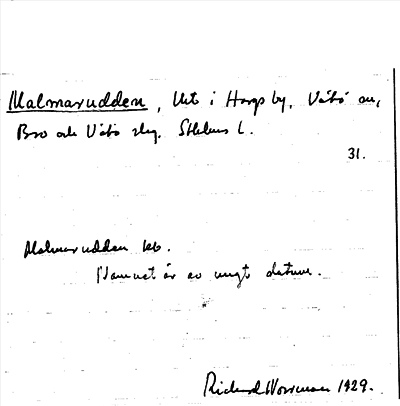 Malmarudden, Ukt i Hargs by, Vätö sn,
Bro och Vätö slg. Sthlms l.
31.
Malmarudden
Namnet är av ungt datum.
Richard Norrman 1929.